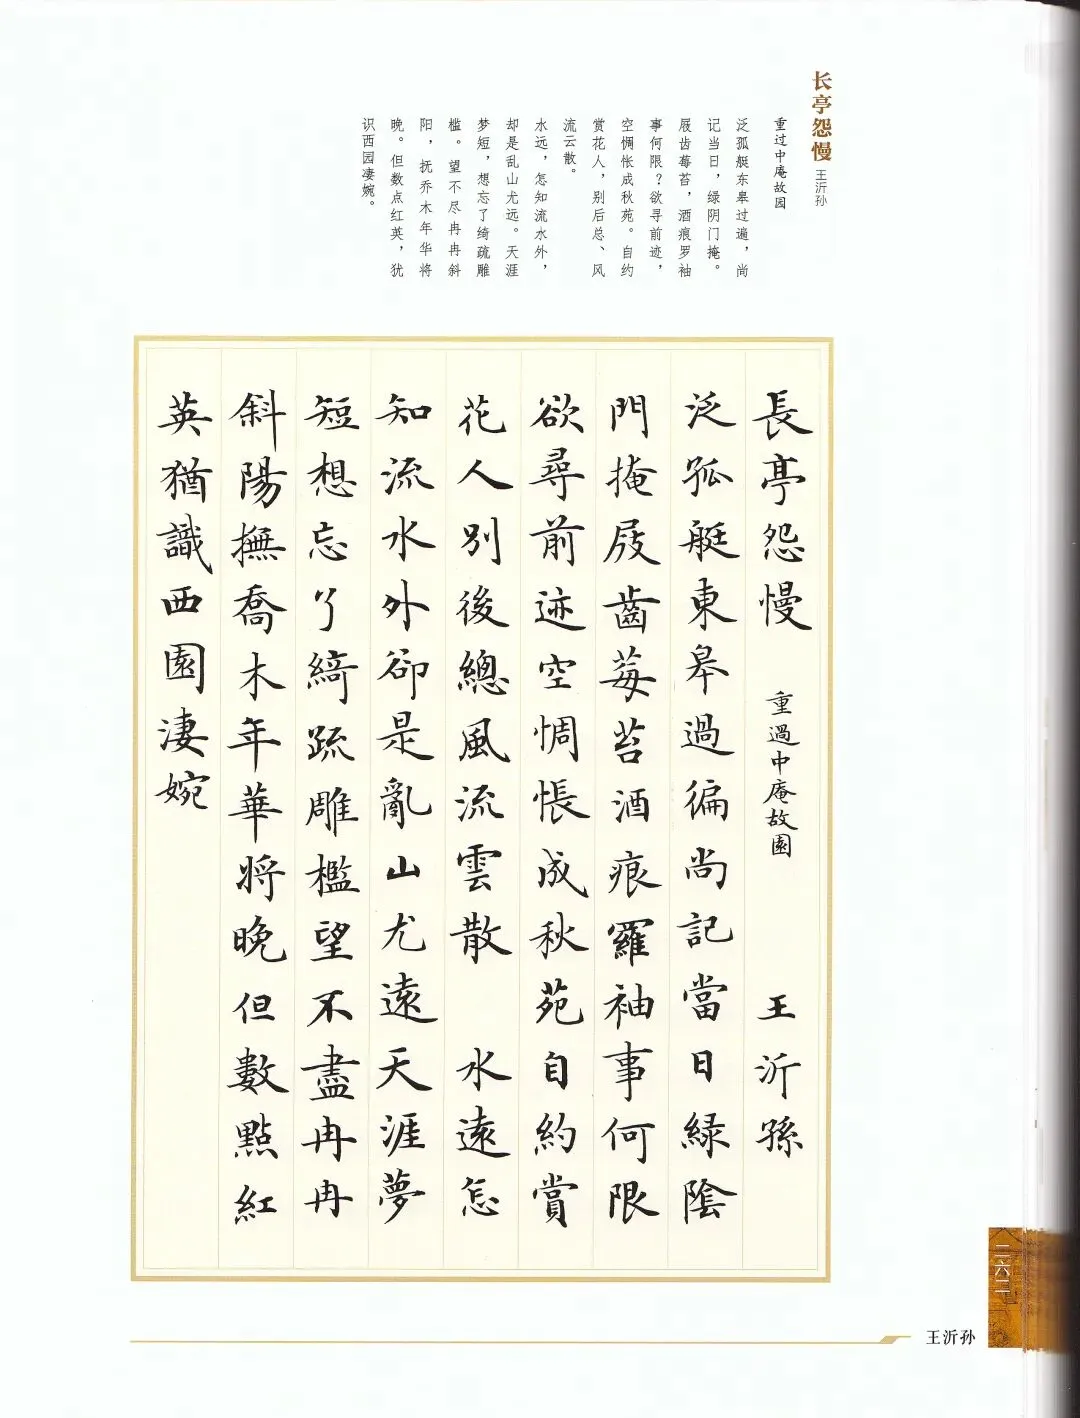 长亭怨慢 王沂孙
重过中庵故园
泛孤艇东皋过遍，尚
记当日，绿阴门掩。
屐齿莓苔，酒痕罗袖
事何限？欲寻前迹，
空惆怅成秋苑。自约
赏花人，别后总、风
流云散。
水远，怎知流水外，
却是乱山尤远。天涯
梦短，想忘了绮疏雕
槛。望不尽冉冉斜
阳，抚乔木年华将
晚。但数点红英，犹
识西园凄婉。
長亭怨慢 重過中庵故園 王沂孫
泛孤艇東皋過徧尚記當日緑陰
門掩屐齒莓苔酒痕羅袖事何限
欲尋前迹空惆悵成秋苑自約賞
花人別後總風流雲散 水遠怎
知流水外卻是亂山尤遠天涯夢
短想忘了綺疏雕檻望不盡冉冉
斜陽撫喬木年華將晚但數點紅
英猶識西園淒婉
二六二
王沂孙